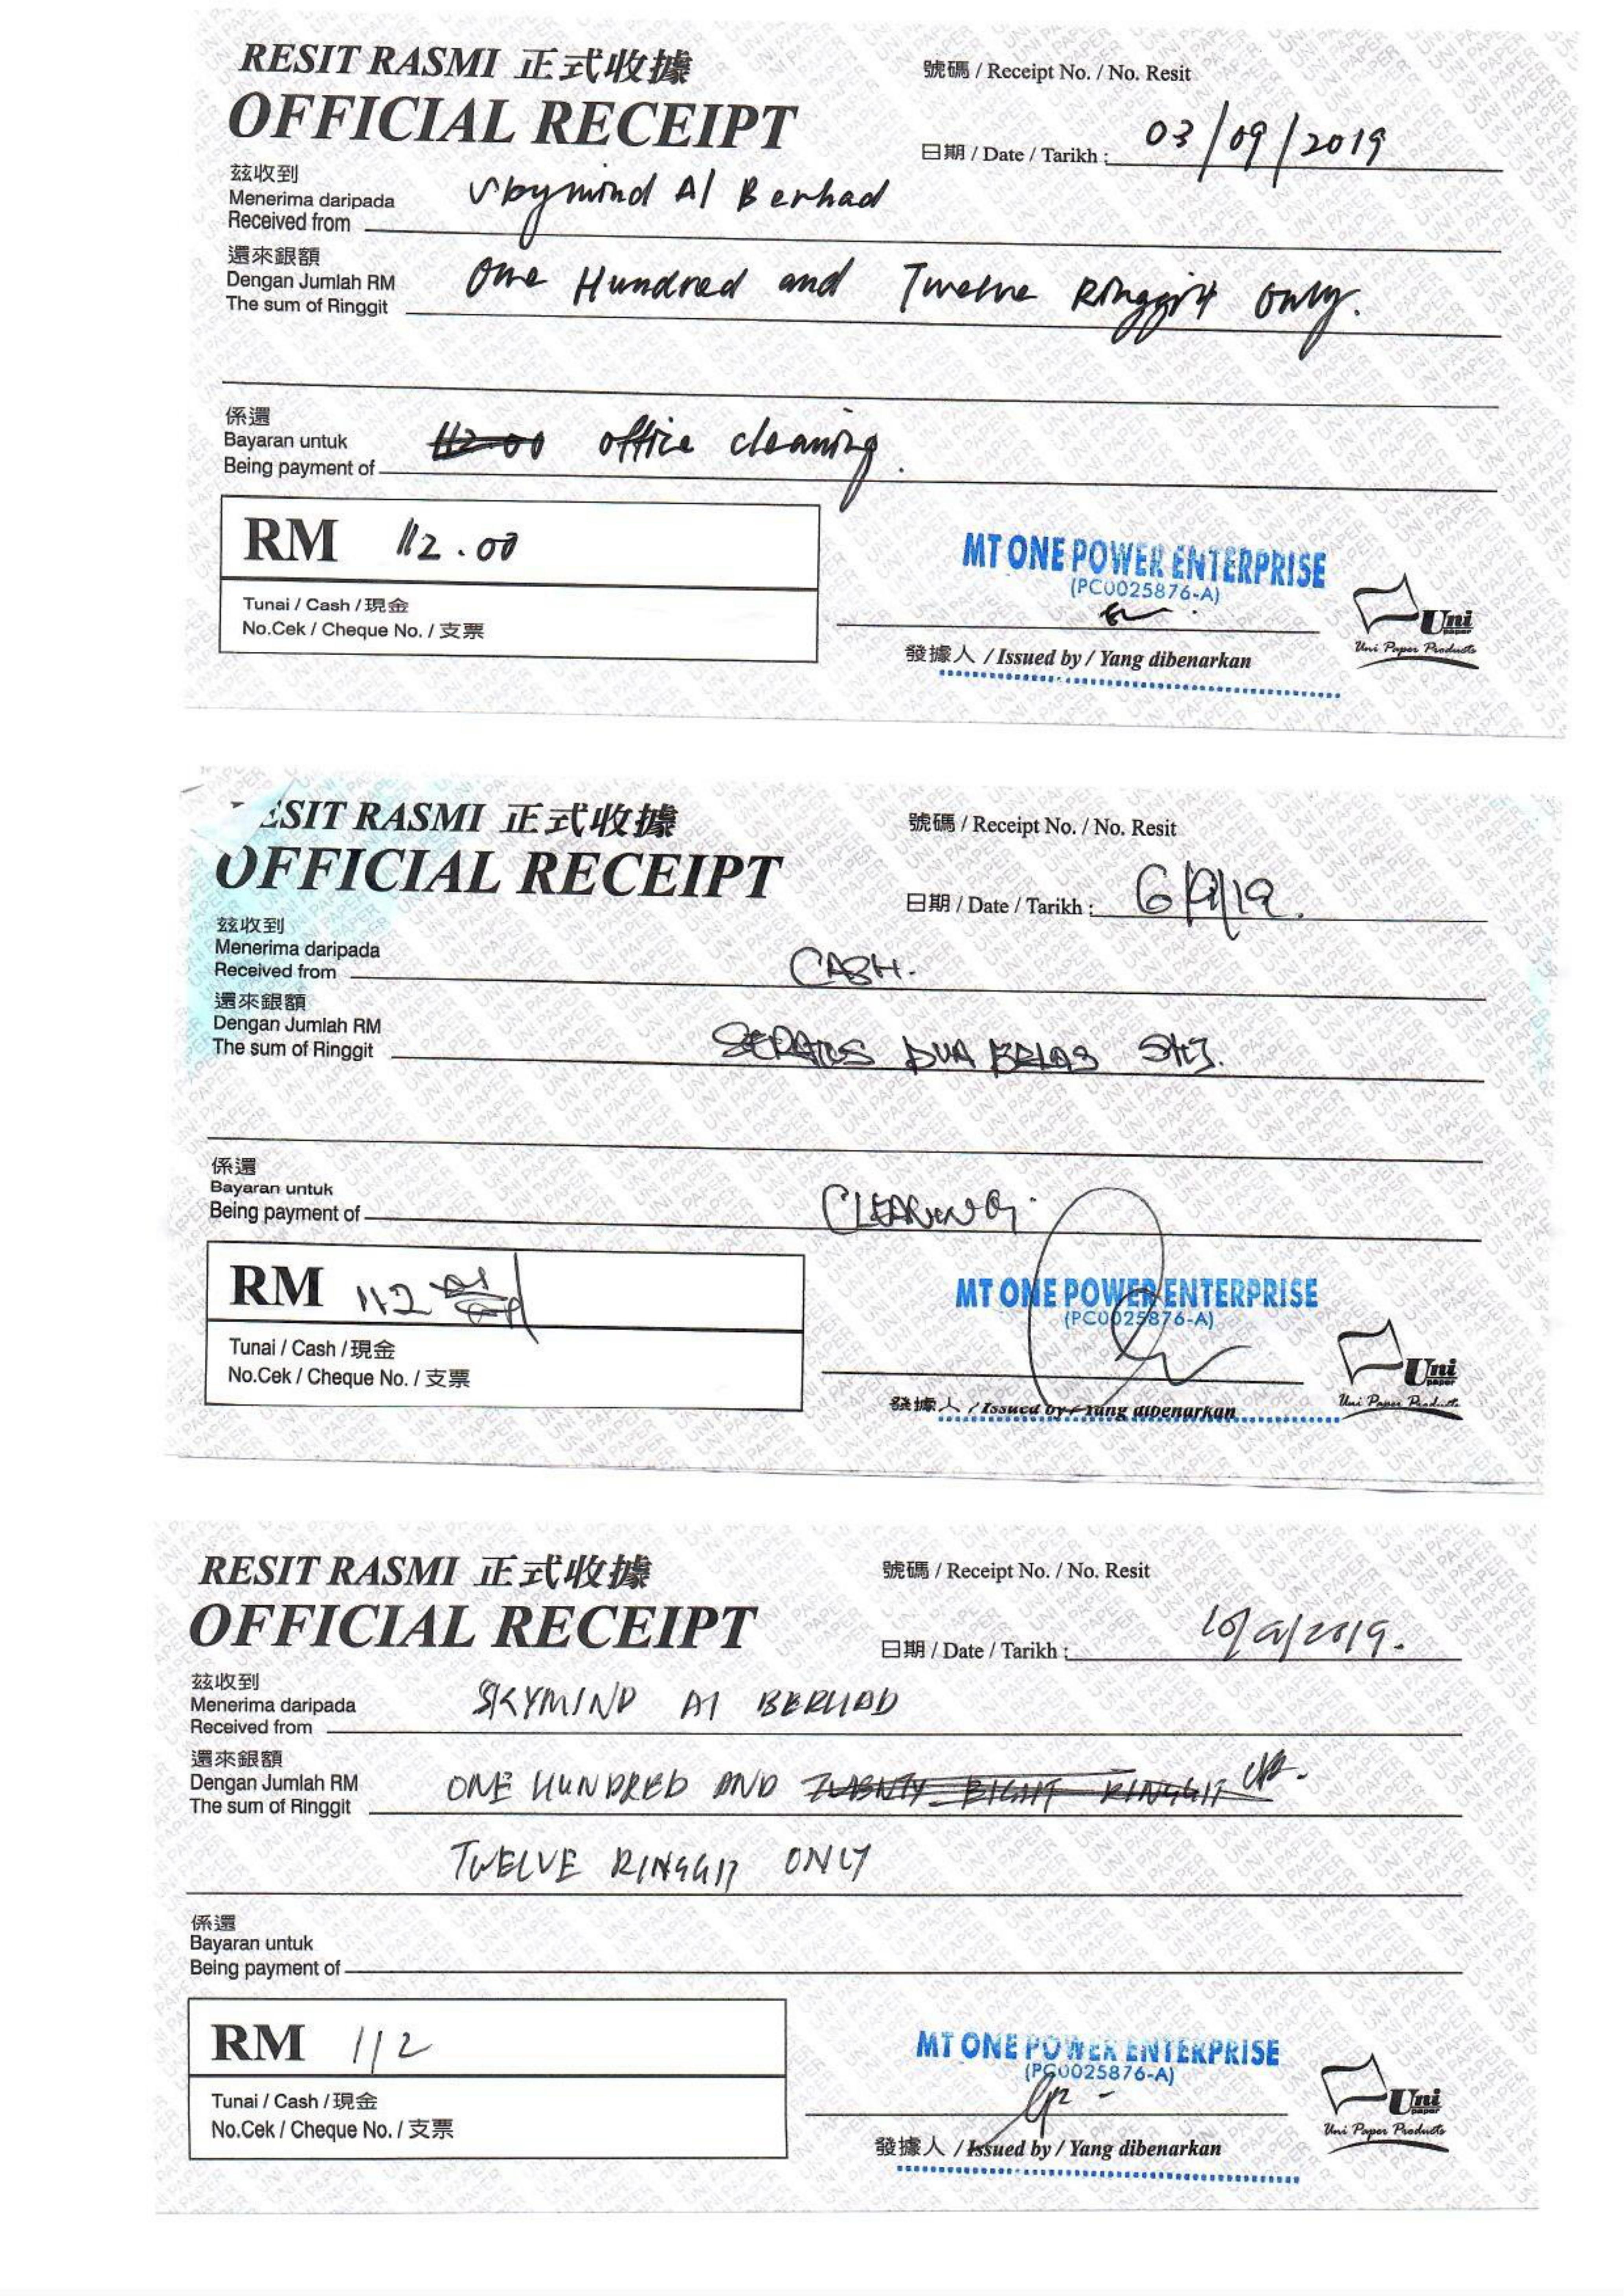 RESIT RASMI 正式收據
OFFICIAL RECEIPT
號碼 / Receipt No. / No. Resit
日期 / Date / Tarikh : 03/09/2019
茲收到
Menerima daripada
Received from Skymind AI Berhad
還來銀額
Dengan Jumlah RM
The sum of Ringgit One Hundred and Twelve Ringgit Only.
係還
Bayaran untuk
Being payment of 112.00 office cleaning.
RM 112.00
Tunai / Cash / 現金
No.Cek / Cheque No. / 支票
MT ONE POWER ENTERPRISE
(PC0025876-A)
發據人 / Issued by / Yang dibenarkan
Uni
paper
Uni Paper Products
ESIT RASMI 正式收據
OFFICIAL RECEIPT
號碼 / Receipt No. / No. Resit
日期 / Date / Tarikh : 6/9/19.
茲收到
Menerima daripada
Received from CASH.
還來銀額
Dengan Jumlah RM
The sum of Ringgit SERATUS DUA BELAS SHJ.
係還
Bayaran untuk
Being payment of CLEANING.
RM 112
Tunai / Cash / 現金
No.Cek / Cheque No. / 支票
MT ONE POWER ENTERPRISE
(PC0025876-A)
發據人 / Issued by / Yang dibenarkan
Uni
paper
Uni Paper Products
RESIT RASMI 正式收據
OFFICIAL RECEIPT
號碼 / Receipt No. / No. Resit
日期 / Date / Tarikh : 10/9/2019.
茲收到
Menerima daripada
Received from SKYMIND AI BERHAD
還來銀額
Dengan Jumlah RM
The sum of Ringgit ONE HUNDRED AND TWENTY EIGHT RINGGIT
TWELVE RINGGIT ONLY
係還
Bayaran untuk
Being payment of
RM 112
Tunai / Cash / 現金
No.Cek / Cheque No. / 支票
MT ONE POWER ENTERPRISE
(PC0025876-A)
發據人 / Issued by / Yang dibenarkan
Uni
paper
Uni Paper Products